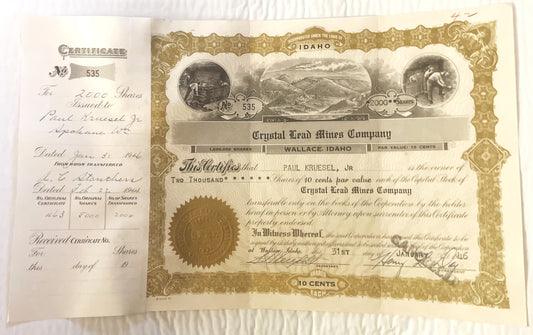 CERTIFICATE
No 535
For 2000 Shares
Issued to
Paul Kruesel Jr
Spokane Wn
Dated Jan 31 1946
FROM WHOM TRANSFERRED
Dated Feb 27 1941
NO. ORIGINAL CERTIFICATE
NO. ORIGINAL SHARES
NO. OF SHARES TRANSFERRED
463 5000 2000
Received CERTIFICATE No.
For Shares
this day of 19
INCORPORATED UNDER THE LAWS OF
IDAHO
No 535
2000 SHARES
Crystal Lead Mines Company
WALLACE, IDAHO
PAR VALUE 10 CENTS
This Certifies that PAUL KRUESEL, JR is the owner of
TWO THOUSAND Shares of 10 cents par value each of the Capital Stock of
Crystal Lead Mines Company
transferable only on the books of the Corporation by the holder
hereof in person or by Attorney upon surrender of this Certificate
properly endorsed.
In Witness Whereof, the said Corporation has caused this Certificate to be
signed by its duly authorized officers and its Corporate Seal to be hereunto affixed
at Wallace, Idaho, this 31ST day of JANUARY A.D. 1946
10 CENTS
EACH